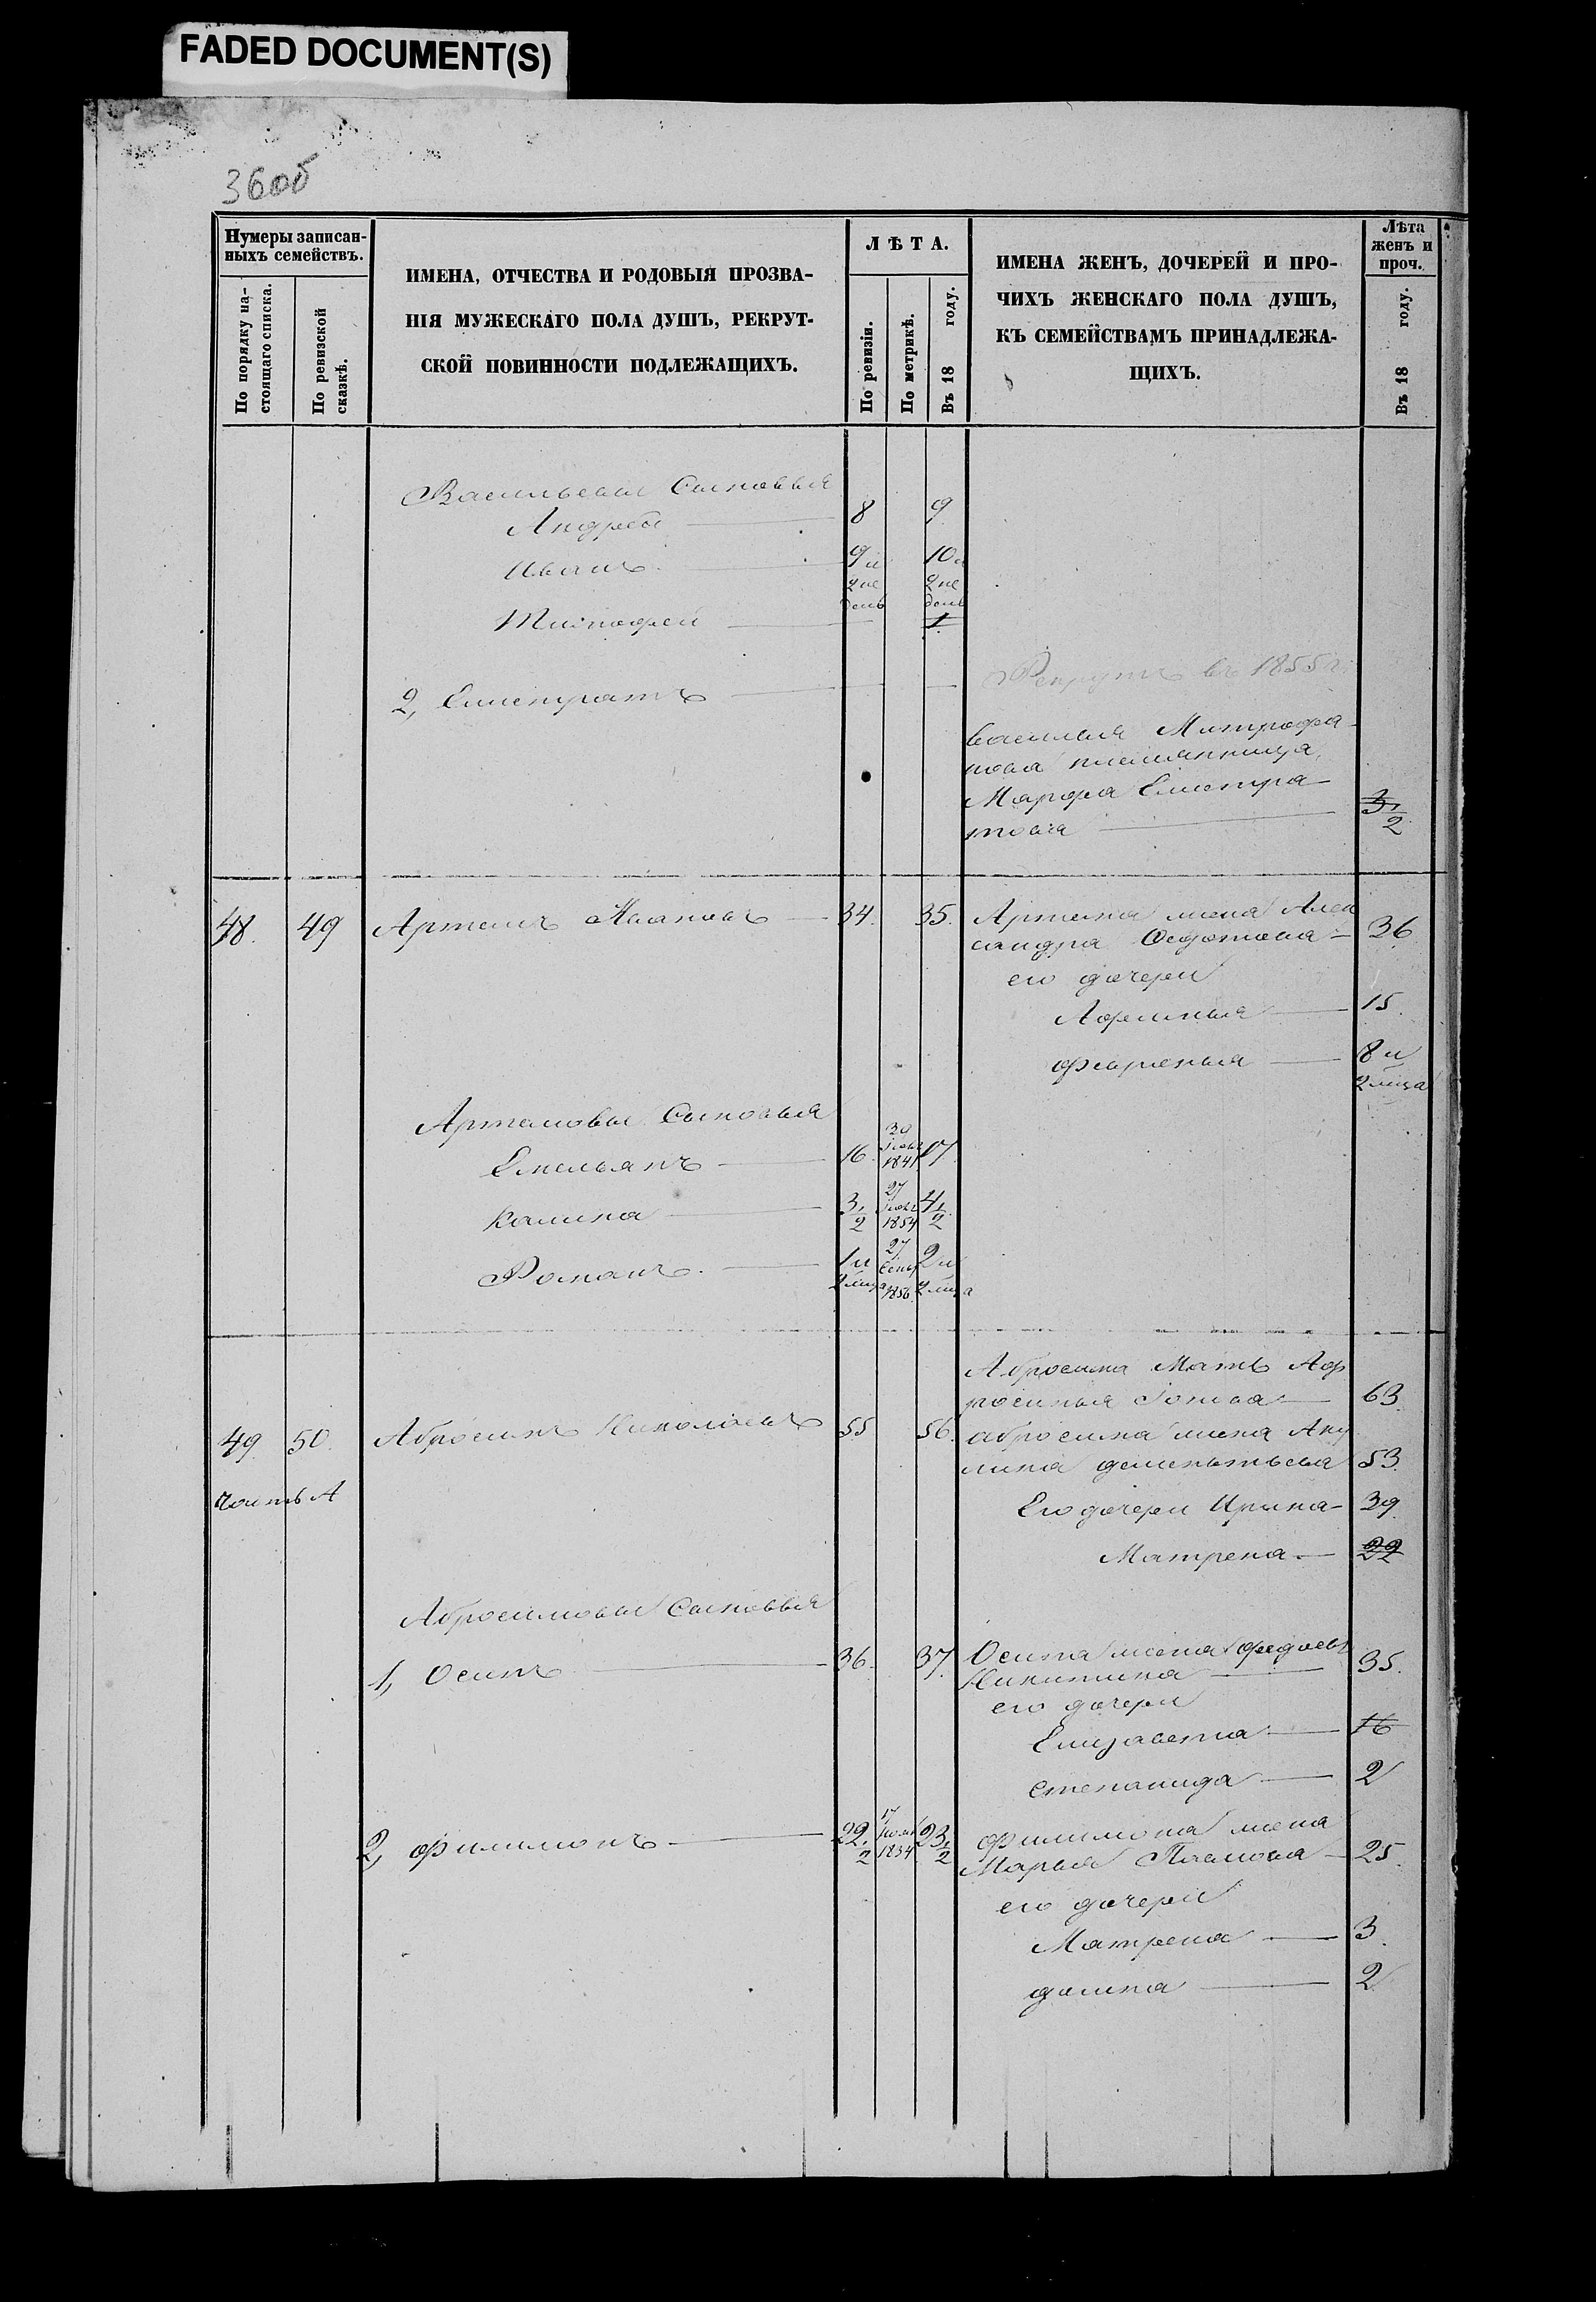 FADED DOCUMENT(S)
36об
Нумеры записан-
ныхъ семействъ.
По порядку на-
стоящаго списка.
По ревизской
сказкѣ.
ИМЕНА, ОТЧЕСТВА И РОДОВЫЯ ПРОЗВА-
НІЯ МУЖЕСКАГО ПОЛА ДУШЪ, РЕКРУТ-
СКОЙ ПОВИННОСТИ ПОДЛЕЖАЩИХЪ.
ЛѢТА.
По ревизіи.
По метрикѣ.
Въ 18 году.
ИМЕНА ЖЕНЪ, ДОЧЕРЕЙ И ПРО-
ЧИХЪ ЖЕНСКАГО ПОЛА ДУШЪ,
КЪ СЕМЕЙСТВАМЪ ПРИНАДЛЕЖА-
ЩИХЪ.
Лѣта
женъ и
проч.
Въ 18 году.
Васильевы Сыновья
Андрей 8 9
Иванъ 9 и 10 и
2 не 2 не
дель дель
Тимофей 1
2, Емстратъ Рекрутъ въ 1855 г.
Василья Митрофа
нова племянница
Марфа Емстра
това 3 1/2
48. 49 Артемъ 34. 35. Артема жена Алек
сандра Федотова 36
его дочери
Афимья 15.
8 и
2 мца
Артемовы Сыновья
Емельянъ 16. 30 1841 17
Калина 3 1/2 27 1854 4 1/2
Романъ 1 и 27 2 и
2 мца 1856 2 мца
Абросима Мать Аф
росинья 63
49 50. Абросимъ Николаевъ 55 56. Абросима жена Аку
лина Дементьева 53.
часть А
Его дочери Ирина 39
Матрена 22
Абросимовы Сыновья
1, Осипъ 36. 37. Осипа жена Федосья
Никитина 35.
его дочери
Елизавета 16
Степанида 2
2, Филимонъ 22 1/2 17 1834 23 1/2 Филимона жена
Марья 25.
его дочери
Матрена 3.
Домна 2